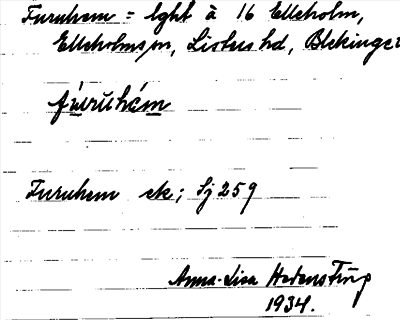 Furuhem = lght å 16 Elleholm,
Elleholms sn, Listers hd, Blekinge
fùruhém
Furuhem ek; Sj 259
Anna-Lisa
1934.